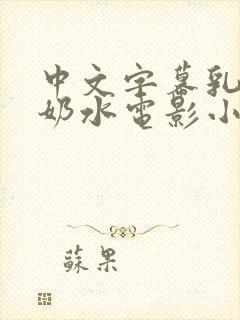 中文字幕乳
奶水电影小
蘇果